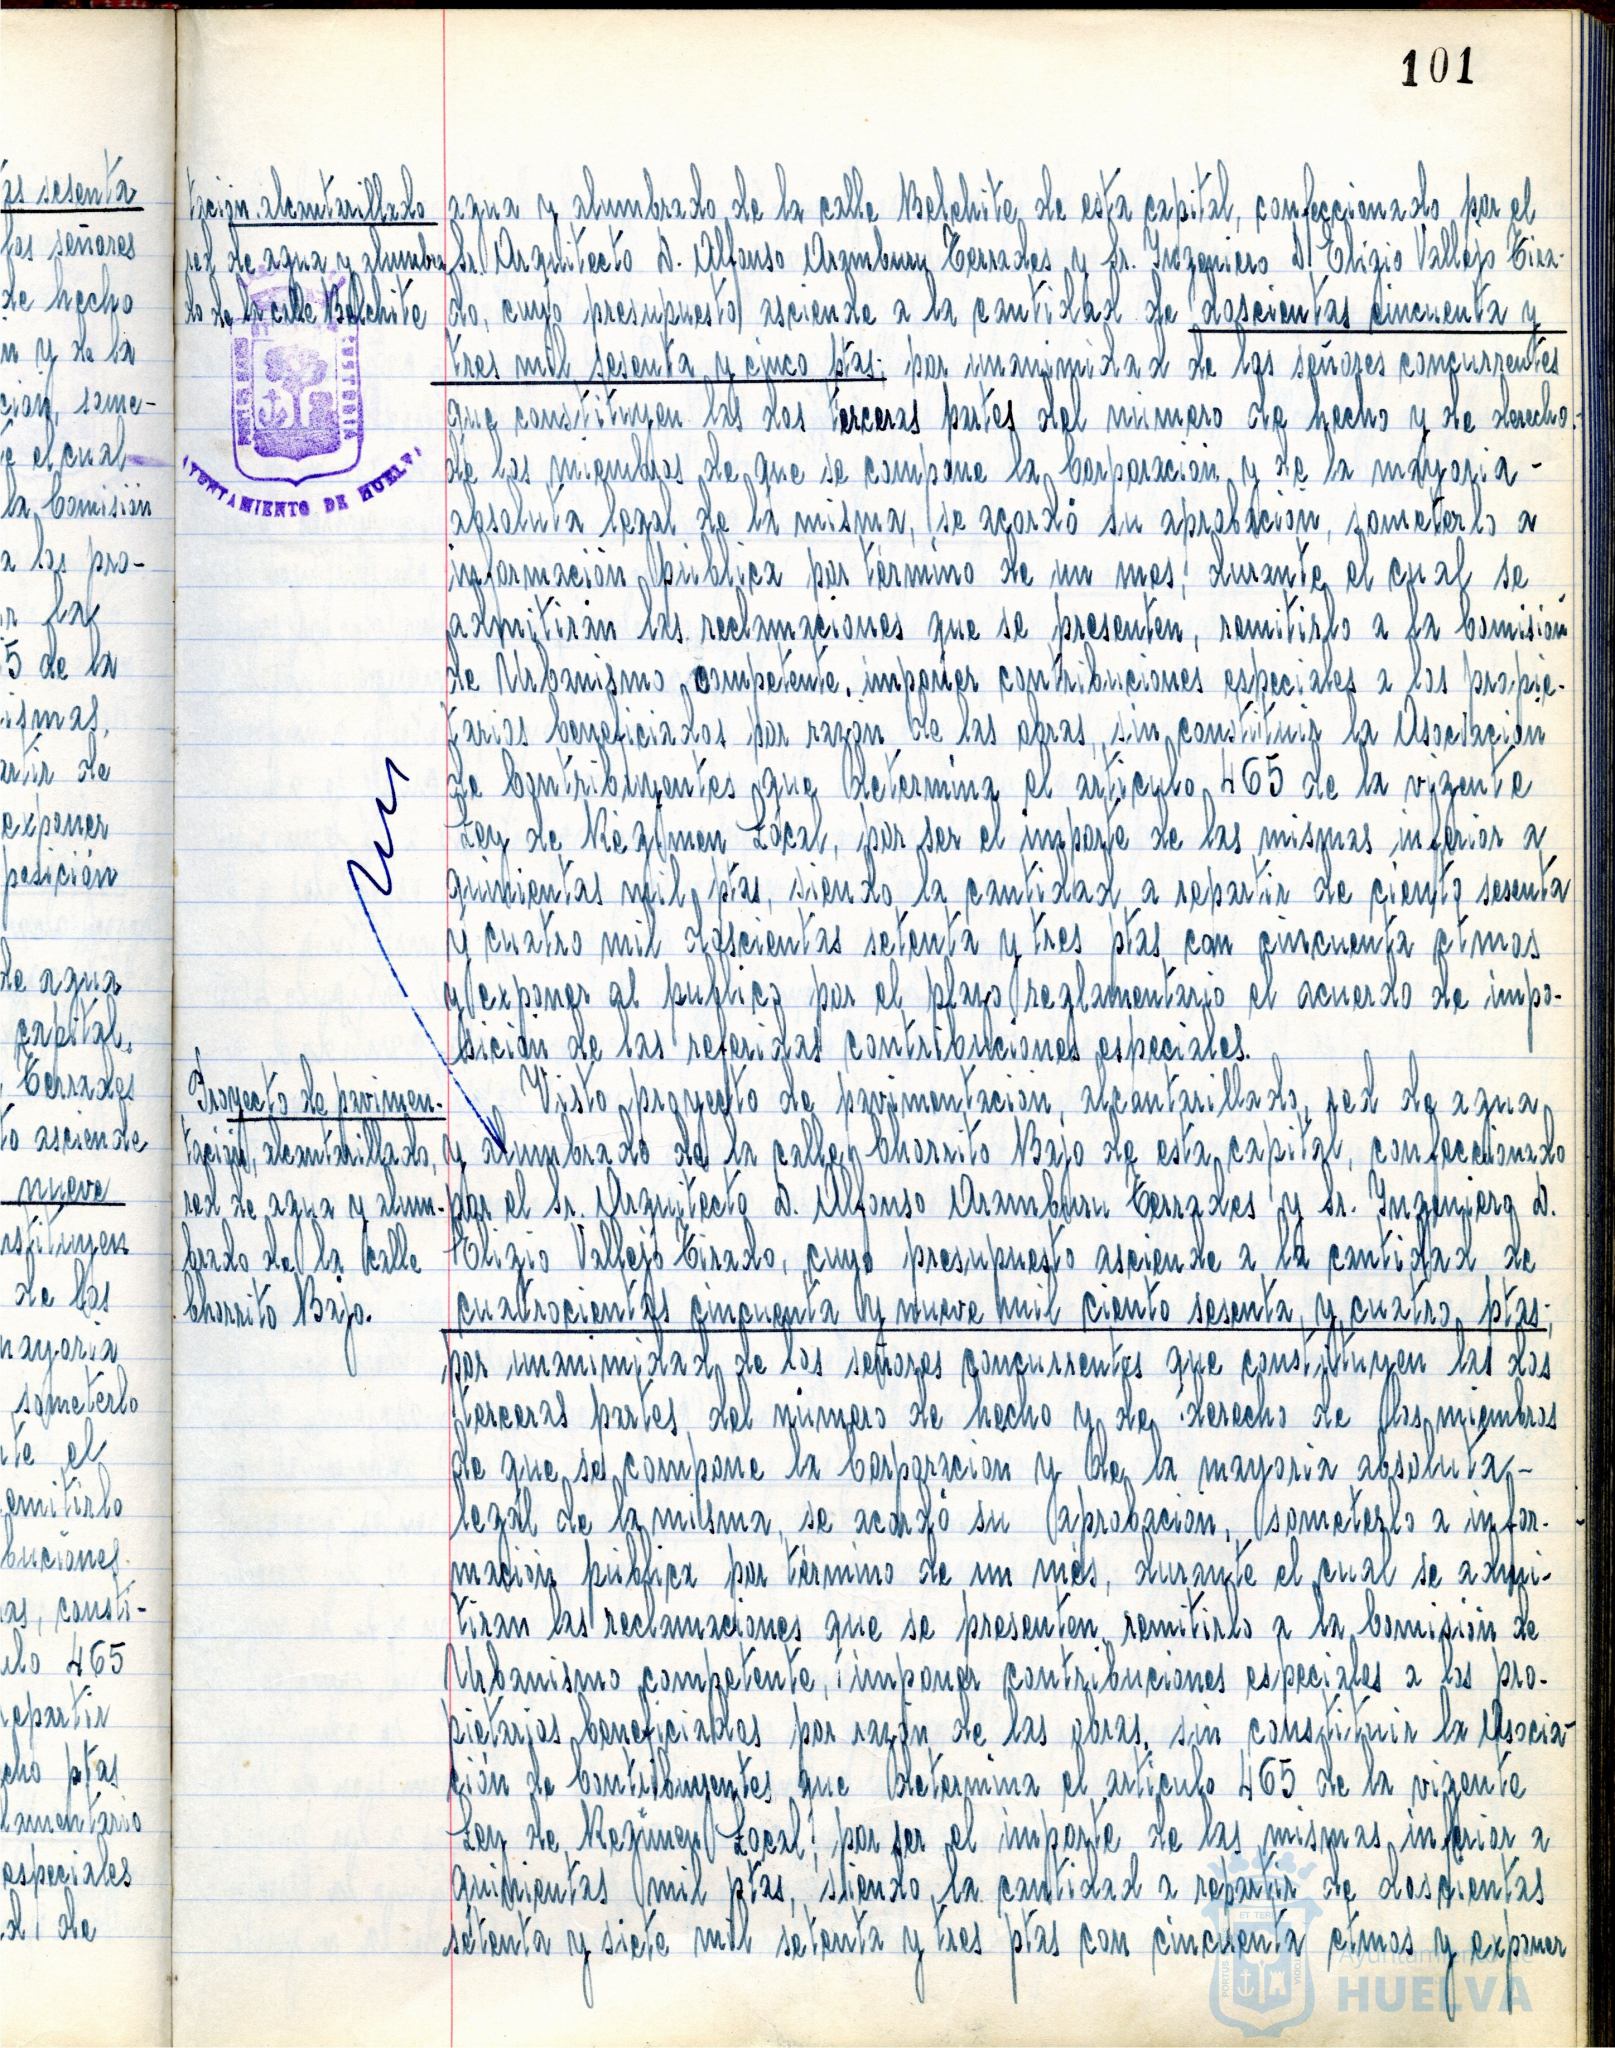 101
tas sesenta
los señores
de hecho
n y de la
ción, some-
e el cual
la Comisión
a los pro-
r las
5 de la
ismas,
artir de
exponer
posición
de agua
capital,
Terrades
to asciende
nueve
nstituyen
de los
mayoria
someterlo
nte el
emitirlo
buciones
as, consti-
ulo 465
repartir
cho ptas
lamentario
especiales
d de
tación, alcantarillado
red de agua y alumbra
do de la calle Belchite
AYUNTAMIENTO DE HUELVA
agua y alumbrado de la calle Belchite de esta capital, confeccionado por el
Sr. Arquitecto D. Alfonso Aramburu Terrades y Sr. Ingeniero D. Eligio Vallejo Tira-
do, cuyo presupuesto asciende a la cantidad de doscientas cincuenta y
tres mil sesenta y cinco ptas; por unanimidad de los señores concurrentes
que constituyen las dos terceras partes del número de hecho y de derecho
de los miembros de que se compone la Corporación y de la mayoria -
absoluta legal de la misma, se acordó su aprobación, someterlo a
información pública por término de un mes, durante el cual se
admitirán las reclamaciones que se presenten, remitirlo a la Comisión
de Urbanismo competente, imponer contribuciones especiales a los propie-
tarios beneficiados por razón de las obras, sin constituir la Asociación
de Contribuyentes que determina el articulo 465 de la vigente
Ley de Régimen Local, por ser el importe de las mismas inferior a
quinientas mil ptas, siendo la cantidad a repartir de ciento sesenta
y cuatro mil doscientas setenta y tres ptas con cincuenta ctmos
y exponer al publico por el plazo reglamentario el acuerdo de impo-
sición de las referidas contribuciones especiales.
Proyecto de pavimen-
tación, alcantarillado,
red de agua y alum-
brado de la calle
Chorrito Bajo.
Visto proyecto de pavimentación, alcantarillado, red de agua
y alumbrado de la calle Chorrito Bajo de esta capital, confeccionado
por el Sr. Arquitecto D. Alfonso Aramburu Terrades y Sr. Ingeniero D.
Eligio Vallejo Tirado, cuyo presupuesto asciende a la cantidad de
cuatrocientas cincuenta y nueve mil ciento sesenta y cuatro ptas;
por unanimidad de los señores concurrentes que constituyen las dos
terceras partes del número de hecho y de derecho de los miembros
de que se compone la Corporación y de la mayoria absoluta -
legal de la misma, se acordó su aprobación, someterlo a infor-
mación pública por término de un mes, durante el cual se admi-
tiran las reclamaciones que se presenten, remitirlo a la Comisión de
Urbanismo competente, imponer contribuciones especiales a los pro-
pietarios beneficiados por razón de las obras, sin constituir la Asocia-
ción de Contribuyentes que determina el articulo 465 de la vigente
Ley de Regimen Local, por ser el importe de las mismas inferior a
quinientas mil ptas, siendo la cantidad a repartir de doscientas
setenta y siete mil setenta y tres ptas con cincuenta ctmos y exponer
Ayuntamiento de
HUELVA